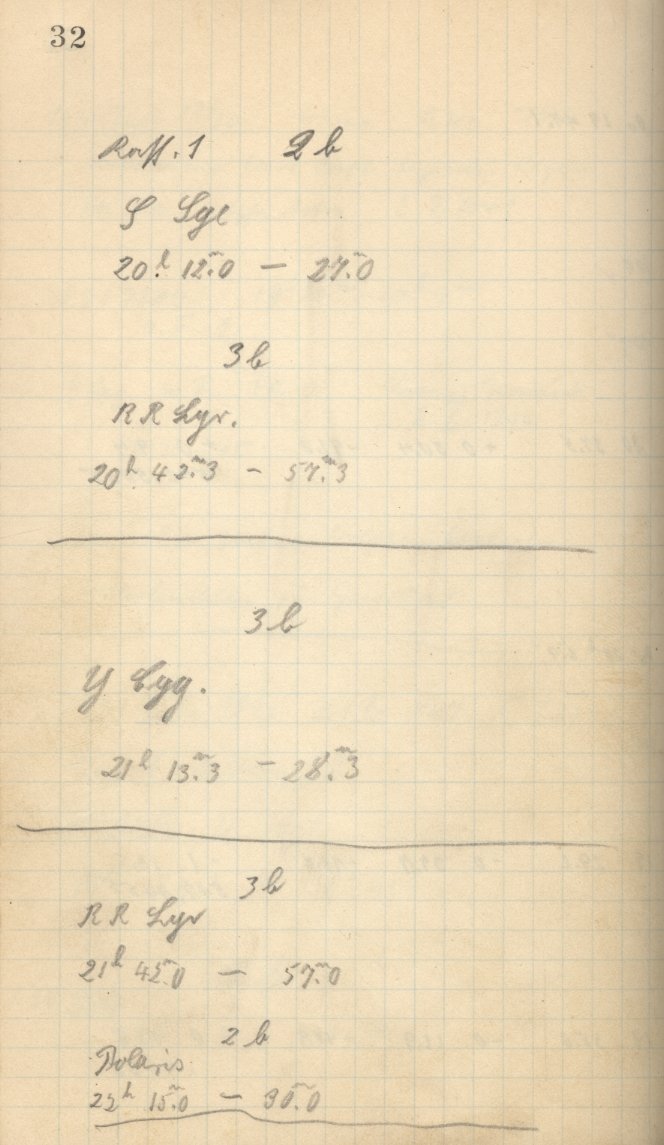 32
2 b
S Sge
20h 12m.0 — 27m.0
3 b
RR Lyr.
20h 42m.3 — 57m.3
3 b
Y Cyg.
21h 13m.3 — 28m.3
3 b
RR Lyr
21h 42m.0 — 57m.0
2 b
Polaris
22h 15m.0 — 30m.0